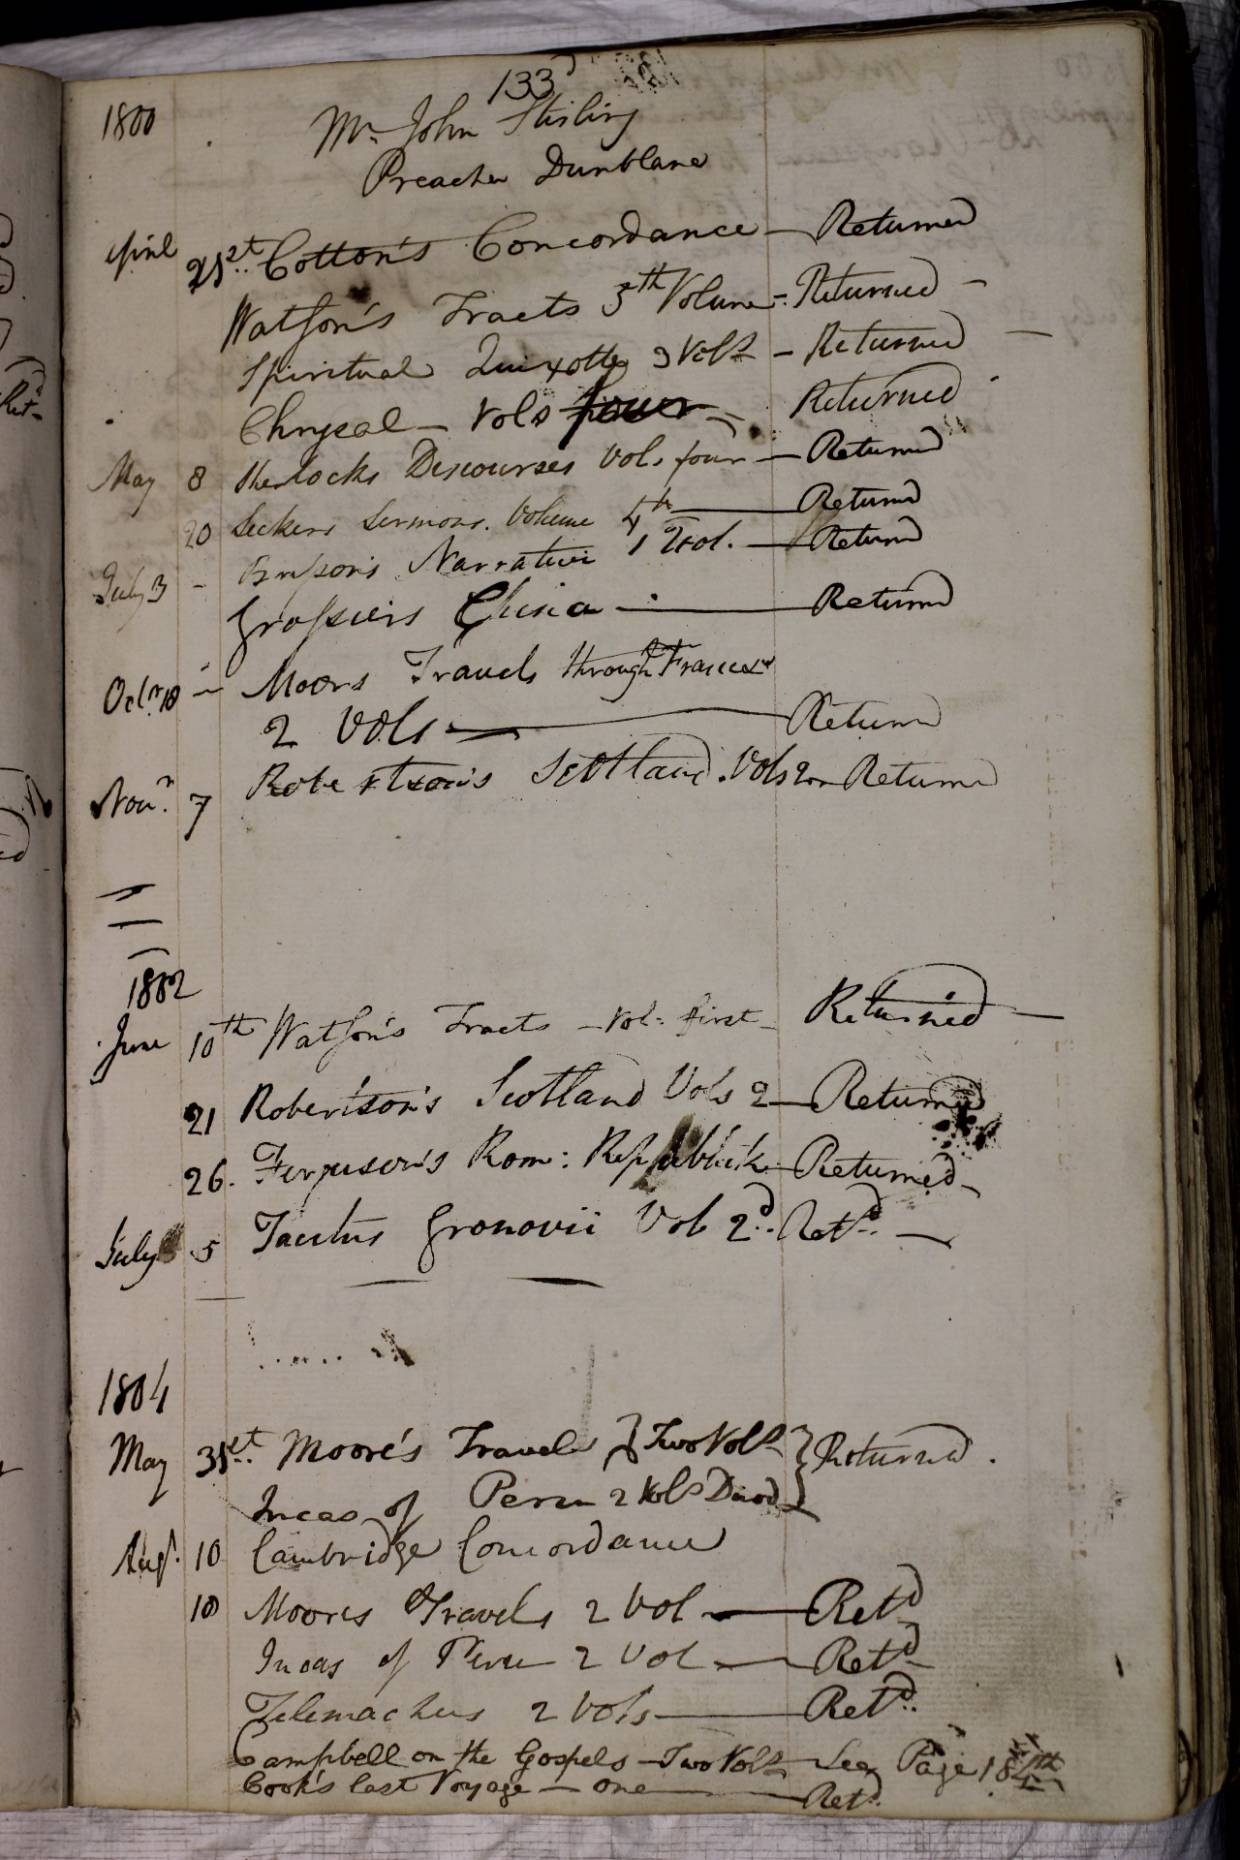 133
1800
Mr. John Stirling
Preacher Dunblane
April 21st. Cotton's Concordance - Returned
Watson's Tracts 5th Volume - Returned -
Spiritual Quixotte 3 Vols - Returned -
Chrysal - Vols four - Returned
May 8 Sherlocks Discourses Vols four - Returned
20 Seckers Sermons. Volume 4th - Returnd
July 3 - Narrative 1 Vol. - Returnd
Grossiers China - Returnd
Octr. 18 - Moors Travels through France
2 Vols - Returnd
Novr. 7 Robertson's Scotland. Vols 2 - Returnd
1802
June 10th Watson's Tracts - Vol: first - Returned -
21 Robertson's Scotland Vols 2 - Returned
26. Ferguson's Rom: Republick - Returned -
July 5 Tacitus Gronovii Vol 2d. Retd. -
1804
May 31st. Moore's Travels } Two Vols } Returned.
Incas of Peru 2 Vols Duod }
Augt. 10 Cambridge Concordance
10 Moores Travels 2 Vol - Retd
Incas of Peru 2 Vol - Retd
Telemachus 2 Vols - Retd.
Campbell on the Gospels - Two Vols - See Page
Cook's last Voyage - one - Retd.